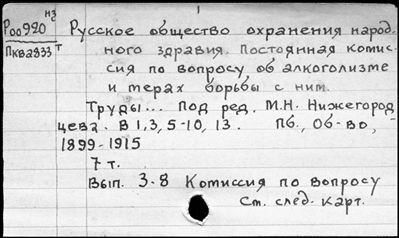 Роо920 из
Русское общество охранения народ-
Пкв2333 т
ного здравия. Постоянная комис-
сия по вопросу об алкоголизме
и мерах борьбы с ним.
Труды... Под ред. М.Н. Нижегород
цева. В 1,3,5-10, 13. Пб., Об-во,
1899-1915
7 т.
Вып. 3-8 Комиссия по вопросу
См. след. карт.